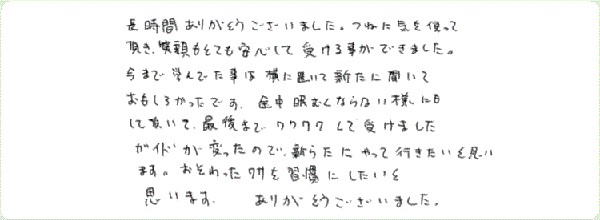 長時間ありがとうございました。つねに気を使って
頂き、笑顔もとても安心して受ける事ができました。
今まで学んでた事は横に置いて新たに聞いて
おもしろかったです。途中眠むくならない様に
して頂いて、最後までワクワクして受けました
ガイドが変ったので、新らたにやって行きたいと思い
ます。おそわったワザを習慣にしたいと
思います。 ありがとうございました。